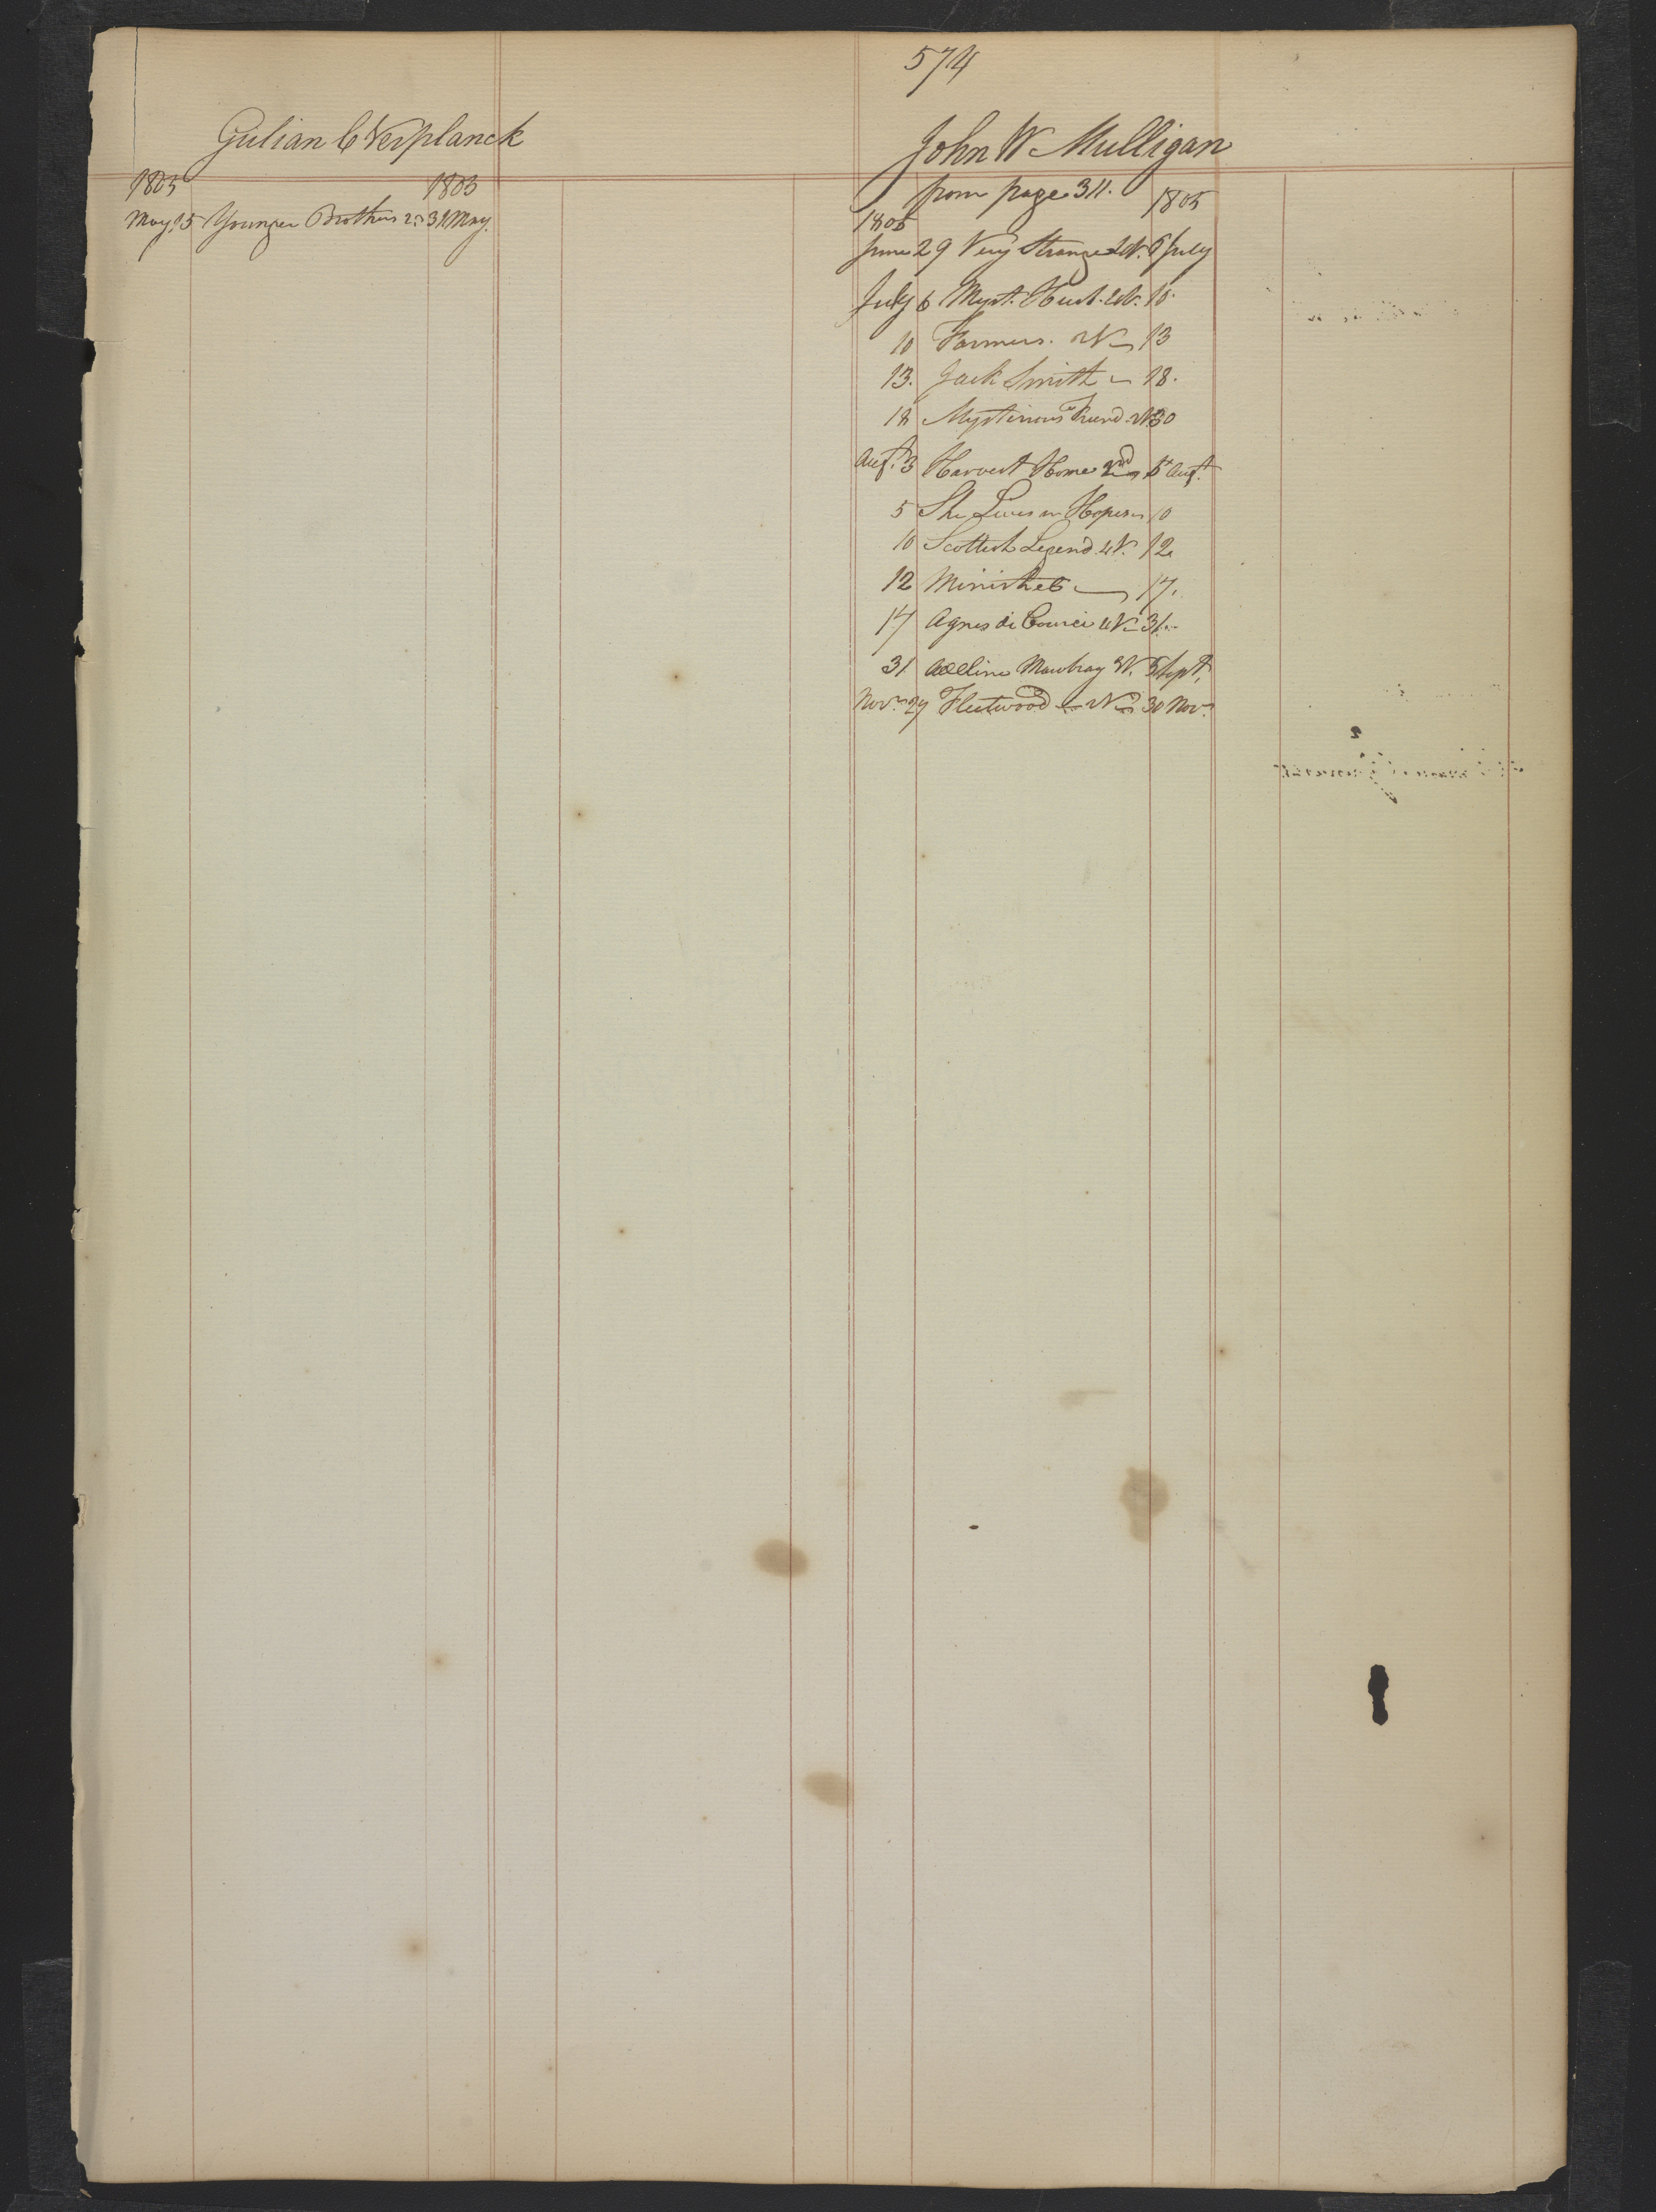 574
Gulian C Verplanck
1805 1805
May 15 Younger Brothers 2d 31 May.
John W Mulligan
from page 311.
1805 1805
June 29 Very Strange 2 V. 6 July
July 6 Myst. Husb. 4 V. 10.
10 Farmers. 2 V 13
13. Jack Smith 18.
18 Mysterious Friend 2 V 30
Augt. 3 Harvest Home 2nd 5 Augt.
5 She Lives in Hopes 10
10 Scottish Legend 4 V. 12
12 Minstrel 17.
17 Agnes de Courci 4 V 31
31 Adeline Mowbray 3 V. 5 Sept.
Novr. 27 Fleetwood 2 V 30 Novr.